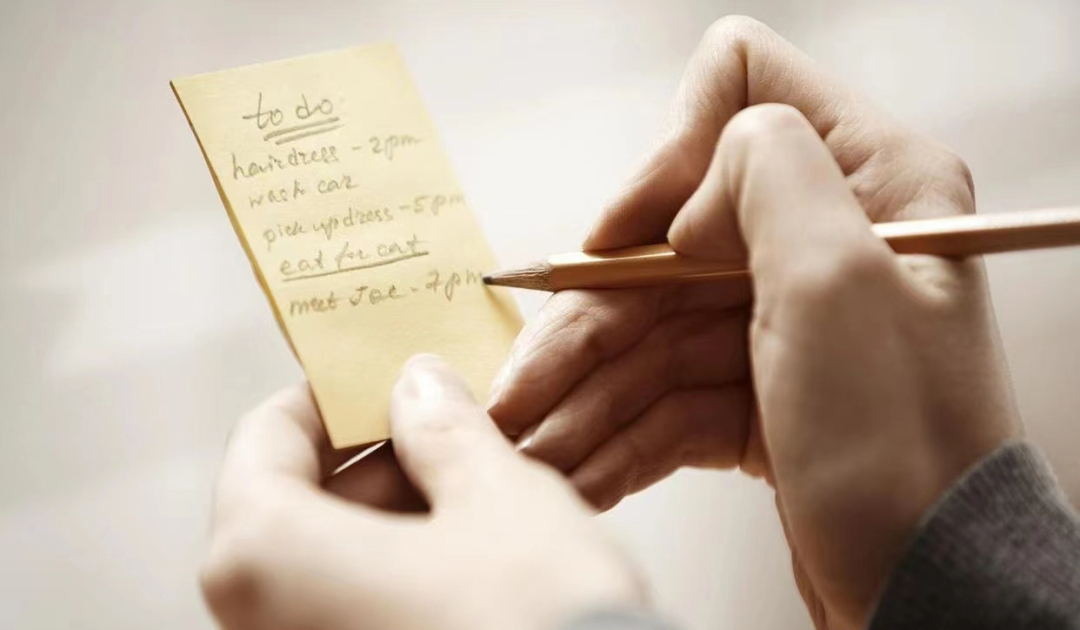 to do
hairdress - 2pm
wash car
pick up dress - 5pm
eat for cat
meet Joe - 7pm